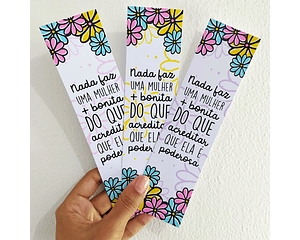 Nada faz
UMA MULHER
+ bonita
DO QUE
acreditar
QUE ELA É
poderosa
Nada faz
UMA MULHER
+ bonita
DO QUE
acreditar
QUE ELA
poder
Nada faz
UMA MULHER
+ bonita
DO QUE
acreditar
QUE ELA É
poderosa